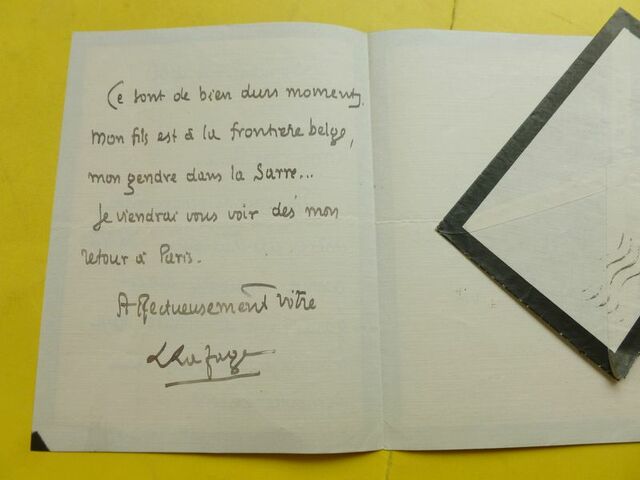 Ce sont de bien durs moments.
Mon fils est à la frontière belge,
mon gendre dans la Sarre...
Je viendrai vous voir dès mon
retour à Paris.
Affectueusement vôtre
LLafage